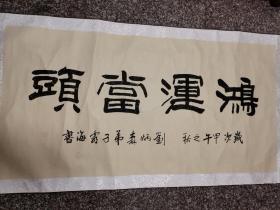 鴻運當頭
歲次甲午之秋 劉炳森弟子霍海書